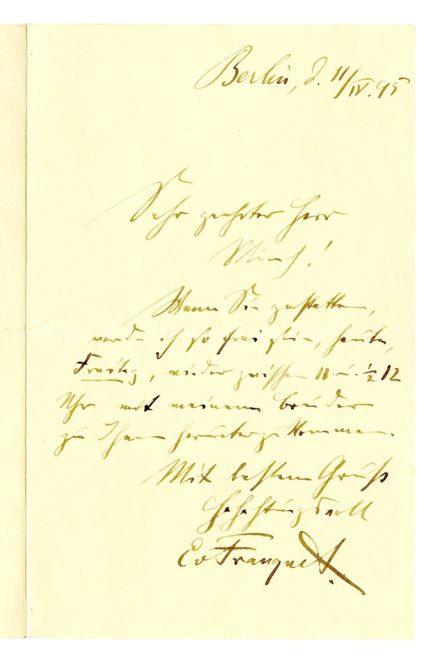 Berlin, d. 11/IV. 95
Sehr geehrter Herr
Munch!
Wenn Sie gestatten,
werde ich so frei sein, heute,
Freitag, wieder zwischen 11 u. ½ 12
Uhr mit meinem Bruder
zu Ihnen herunterzukommen.
Mit bestem Gruß
Hochachtungsvoll
Ev Franquet